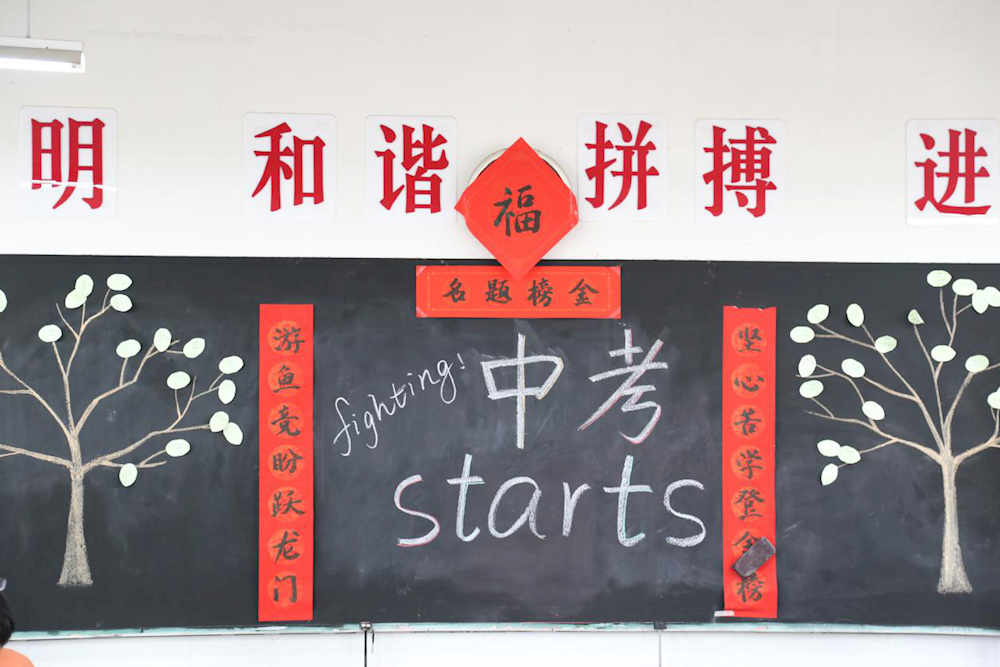 明 和 谐 拼 搏 进
福
名题榜金
fighting!
中考
starts
坚心苦学登金榜
游鱼竞盼跃龙门